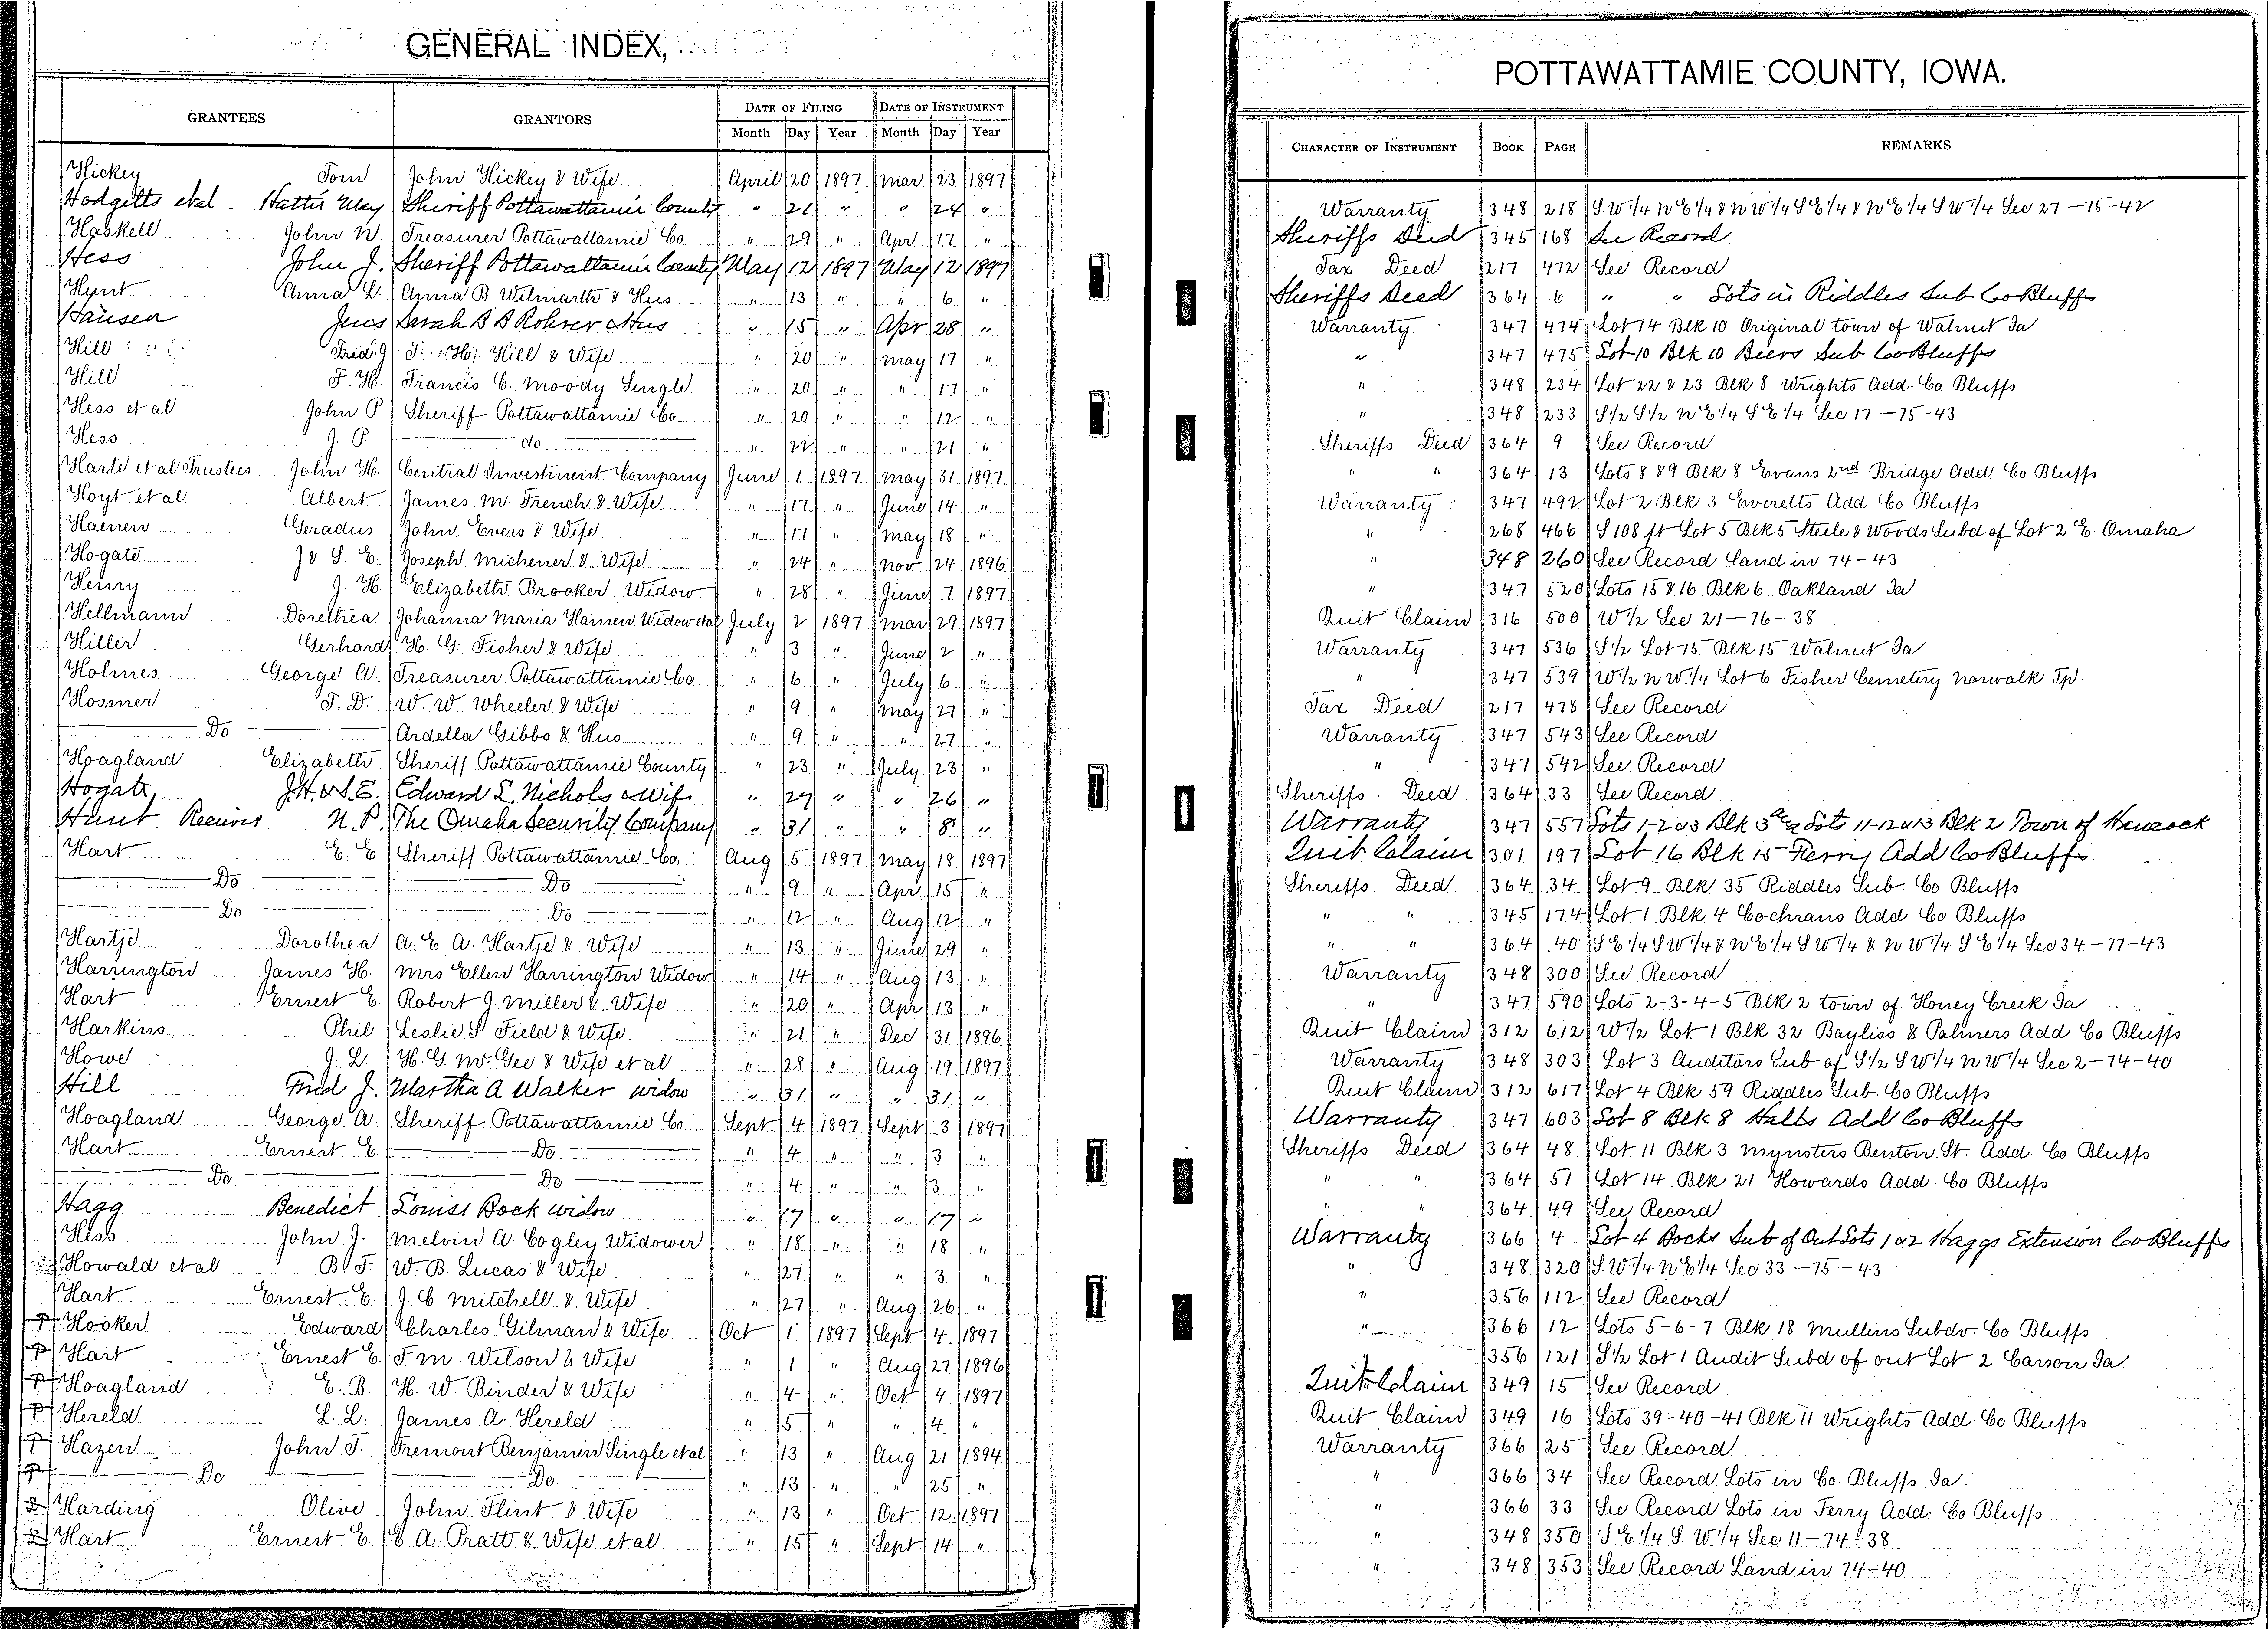 GENERAL INDEX,
GRANTEES GRANTORS DATE OF FILING DATE OF INSTRUMENT
Month Day Year Month Day Year
Hickey Tom John Hickey & Wife April 20 1897 Mar 23 1897
Hodgetts etal Hattie May Sheriff Pottawattamie County " 21 " " 24 "
Haskell John W. Treasurer Pottawattamie Co " 29 " Apr 17 "
Hess John J. Sheriff Pottawattamie County May 12 1897 May 12 1897
Hunt Anna L. Anna B Wilmarth & Hus " 13 " " 6 "
Hansen Jens Sarah B B Rohrer & Hus " 15 " Apr 28 "
Hill Fred J. F. H. Hill & Wife " 20 " May 17 "
Hill F. H. Francis C. Moody Single " 20 " " 17 "
Hess et al John P Sheriff Pottawattamie Co " 20 " " 12 "
Hess J. P. do " 22 " " 21 "
Harle et al Trustees John H. Central Investment Company June 1 1897 May 31 1897
Hoyt et al Albert James M. French & Wife " 17 " June 14 "
Haenen Geradus John Evers & Wife " 17 " May 18 "
Hogate J & S. E. Joseph Michener & Wife " 24 " Nov 24 1896
Henry J. H. Elizabeth Brooker Widow " 28 " June 7 1897
Hellmann Dorethea Johanna Maria Hansen Widow etal July 2 1897 Mar 29 1897
Hiller Gerhard H. G. Fisher & Wife " 3 " June 2 "
Holmes George W. Treasurer Pottawattamie Co " 6 " July 6 "
Hosmer T. D. W. W. Wheeler & Wife " 9 " May 27 "
Do Ardella Gibbs & Hus " 9 " " 27 "
Hoagland Elizabeth Sheriff Pottawattamie County " 23 " July 23 "
Hogate J.H. & S.E. Edward L. Nichols & Wife " 27 " " 26 "
Hunt Receiver N. P. The Omaha Security Company " 31 " " 8 "
Hart E. E. Sheriff Pottawattamie Co. Aug 5 1897 May 18 1897
Do Do " 9 " Apr 15 "
Do Do " 12 " Aug 12 "
Hartje Dorothea A. E A. Hartje & Wife " 13 " June 29 "
Harrington James H. Mrs Ellen Harrington Widow " 14 " Aug 13 "
Hart Ernest E. Robert J. Miller & Wife " 20 " Apr 13 "
Harkins Phil Leslie S Field & Wife " 21 " Dec 31 1896
Howe J. L. H. G. McGee & Wife et al " 28 " Aug 19 1897
Hill Fred J. Martha A Walker widow " 31 " " 31 "
Hoagland George A. Sheriff Pottawattamie Co Sept 4 1897 Sept 3 1897
Hart Ernest E Do " 4 " " 3 "
Do Do " 4 " " 3 "
Hagg Benedict Louise Bock widow " 17 " " 17 "
Hess John J. Melvin A. Cogley Widower " 18 " " 18 "
Howald et al B F W. B. Lucas & Wife " 27 " " 3 "
Hart Ernest E. J. C. Mitchell & Wife " 27 " Aug 26 "
Hooker Edward Charles Gilman & Wife Oct 1 1897 Sept 4 1897
Hart Ernest E. F M. Wilson & Wife " 1 " Aug 27 1896
Hoagland E. B. H. W. Binder & Wife " 4 " Oct 4 1897
Hereld L. L. James A. Hereld " 5 " " 4 "
Hazen John T. Fremont Benjamin Single et al " 13 " Aug 21 1894
Do Do " 13 " " 25 "
Harding Olive John Flint & Wife " 13 " Oct 12 1897
Hart Ernest E. E A. Pratt & Wife et al " 15 " Sept 14 "
POTTAWATTAMIE COUNTY, IOWA.
CHARACTER OF INSTRUMENT BOOK PAGE REMARKS
Warranty 348 218 S W 1/4 N E 1/4 & N W 1/4 S E 1/4 & N E 1/4 S W 1/4 Sec 27-75-42
Sheriffs Deed 345 168 See Record
Tax Deed 217 472 See Record
Sheriffs Deed 364 6 " " Lots in Riddles Sub Co Bluffs
Warranty 347 474 Lot 14 Blk 10 Original town of Walnut Ia
" 347 475 Lot 10 Blk 10 Beers Sub Co Bluffs
" 348 234 Lot 22 & 23 Blk 8 Wrights Add. Co. Bluffs
" 348 233 S 1/2 S 1/2 N E 1/4 S E 1/4 Sec 17-75-43
Sheriffs Deed 364 9 See Record
" " 364 13 Lots 8 & 9 Blk 8 Evans 2nd Bridge Add Co Bluffs
Warranty 347 492 Lot 2 Blk 3 Everetts Add Co Bluffs
" 268 466 S 108 ft Lot 5 Blk 5 Steele & Woods Subd of Lot 2 E. Omaha
" 348 260 See Record land in 74-43
" 347 520 Lots 15 & 16 Blk 6 Oakland Ia
Quit Claim 316 500 W 1/2 Sec 21-76-38
Warranty 347 536 S 1/2 Lot 15 Blk 15 Walnut Ia
" 347 539 W 1/2 N W 1/4 Lot 6 Fisher Cemetery Norwalk Tp.
Tax Deed 217 478 See Record
Warranty 347 543 See Record
" 347 542 See Record
Sheriffs Deed 364 33 See Record
Warranty 347 557 Lots 1-2 & 3 Blk 3 & Lots 11-12 & 13 Blk 2 Town of Hancock
Quit Claim 301 197 Lot 16 Blk 15 Ferry Add Co Bluffs
Sheriffs Deed 364 34 Lot 9 Blk 35 Riddles Sub. Co Bluffs
" " 345 174 Lot 1 Blk 4 Cochrans Add. Co Bluffs
" " 364 40 S E 1/4 S W 1/4 & N E 1/4 S W 1/4 & N W 1/4 S E 1/4 Sec 34-77-43
Warranty 348 300 See Record
" 347 590 Lots 2-3-4-5 Blk 2 town of Honey Creek Ia
Quit Claim 312 612 W 1/2 Lot 1 Blk 32 Bayliss & Palmers Add Co Bluffs
Warranty 348 303 Lot 3 Auditors Sub of S 1/2 S W 1/4 N W 1/4 Sec 2-74-40
Quit Claim 312 617 Lot 4 Blk 59 Riddles Sub. Co Bluffs
Warranty 347 603 Lot 8 Blk 8 Halls Add Co Bluffs
Sheriffs Deed 364 48 Lot 11 Blk 3 Mynsters Benton St. Add. Co Bluffs
" " 364 51 Lot 14 Blk 21 Howards Add. Co Bluffs
" " 364 49 See Record
Warranty 366 4 Lot 4 Bocks Sub of Out Lots 1 & 2 Haggs Extension Co Bluffs
" 348 320 S. W 1/4 N E 1/4 Sec 33-75-43
" 356 112 See Record
" 366 12 Lots 5-6-7 Blk 18 Mullins Subdv. Co Bluffs
" 356 121 S 1/2 Lot 1 Audit Subd of out Lot 2 Carson Ia
Quit Claim 349 15 See Record
Quit Claim 349 16 Lots 39-40-41 Blk 11 Wrights Add. Co Bluffs
Warranty 366 25 See Record
" 366 34 See Record Lots in Co. Bluffs Ia.
" 366 33 See Record Lots in Ferry Add. Co Bluffs
" 348 350 S E 1/4 S. W. 1/4 Sec 11-74-38
" 348 353 See Record Land in 74-40